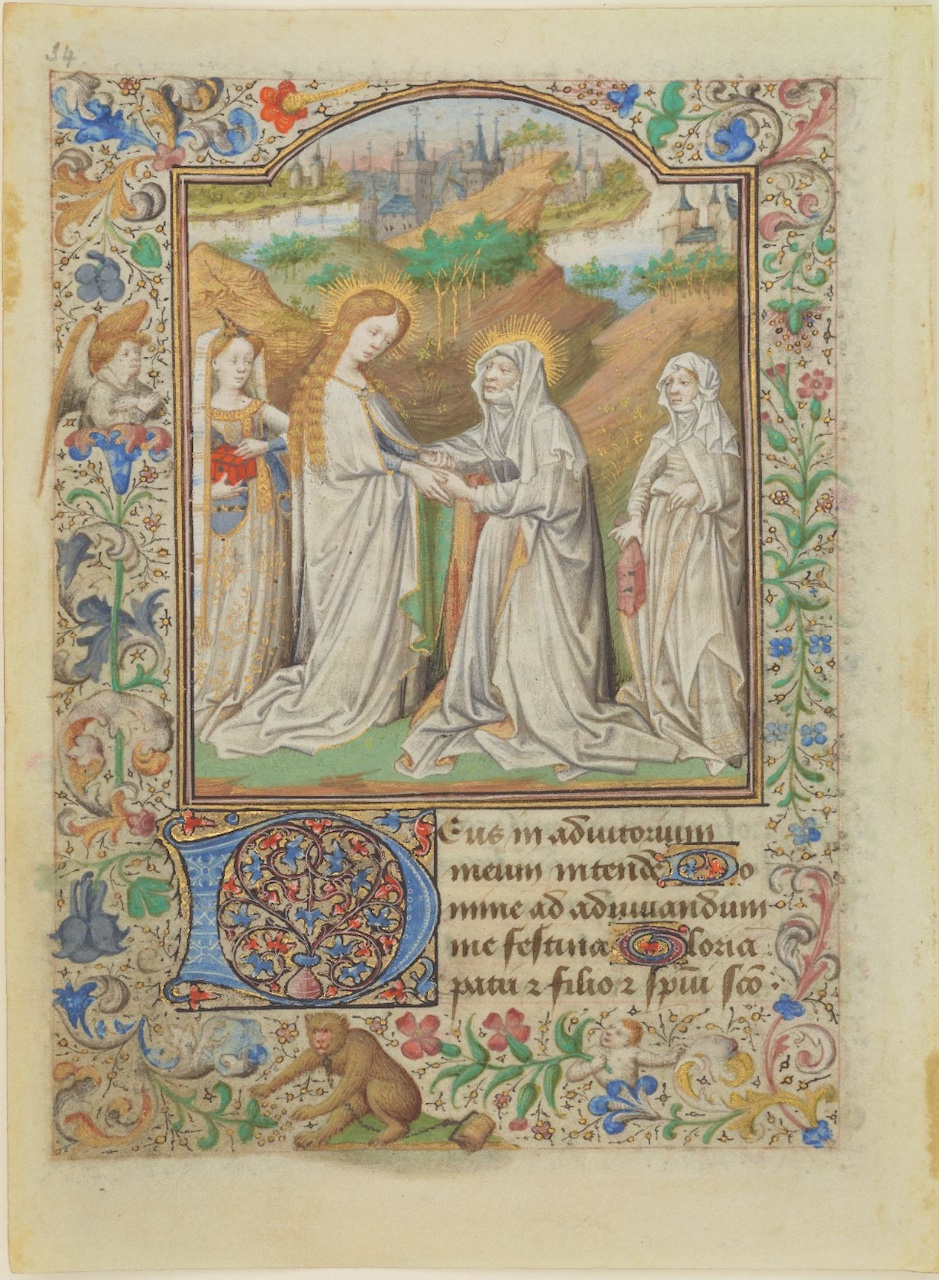 34
Deus in adiutorium
meum intende Do
mine ad adiuuandum
me festina Gloria
patri ⁊ filio ⁊ spiri sco